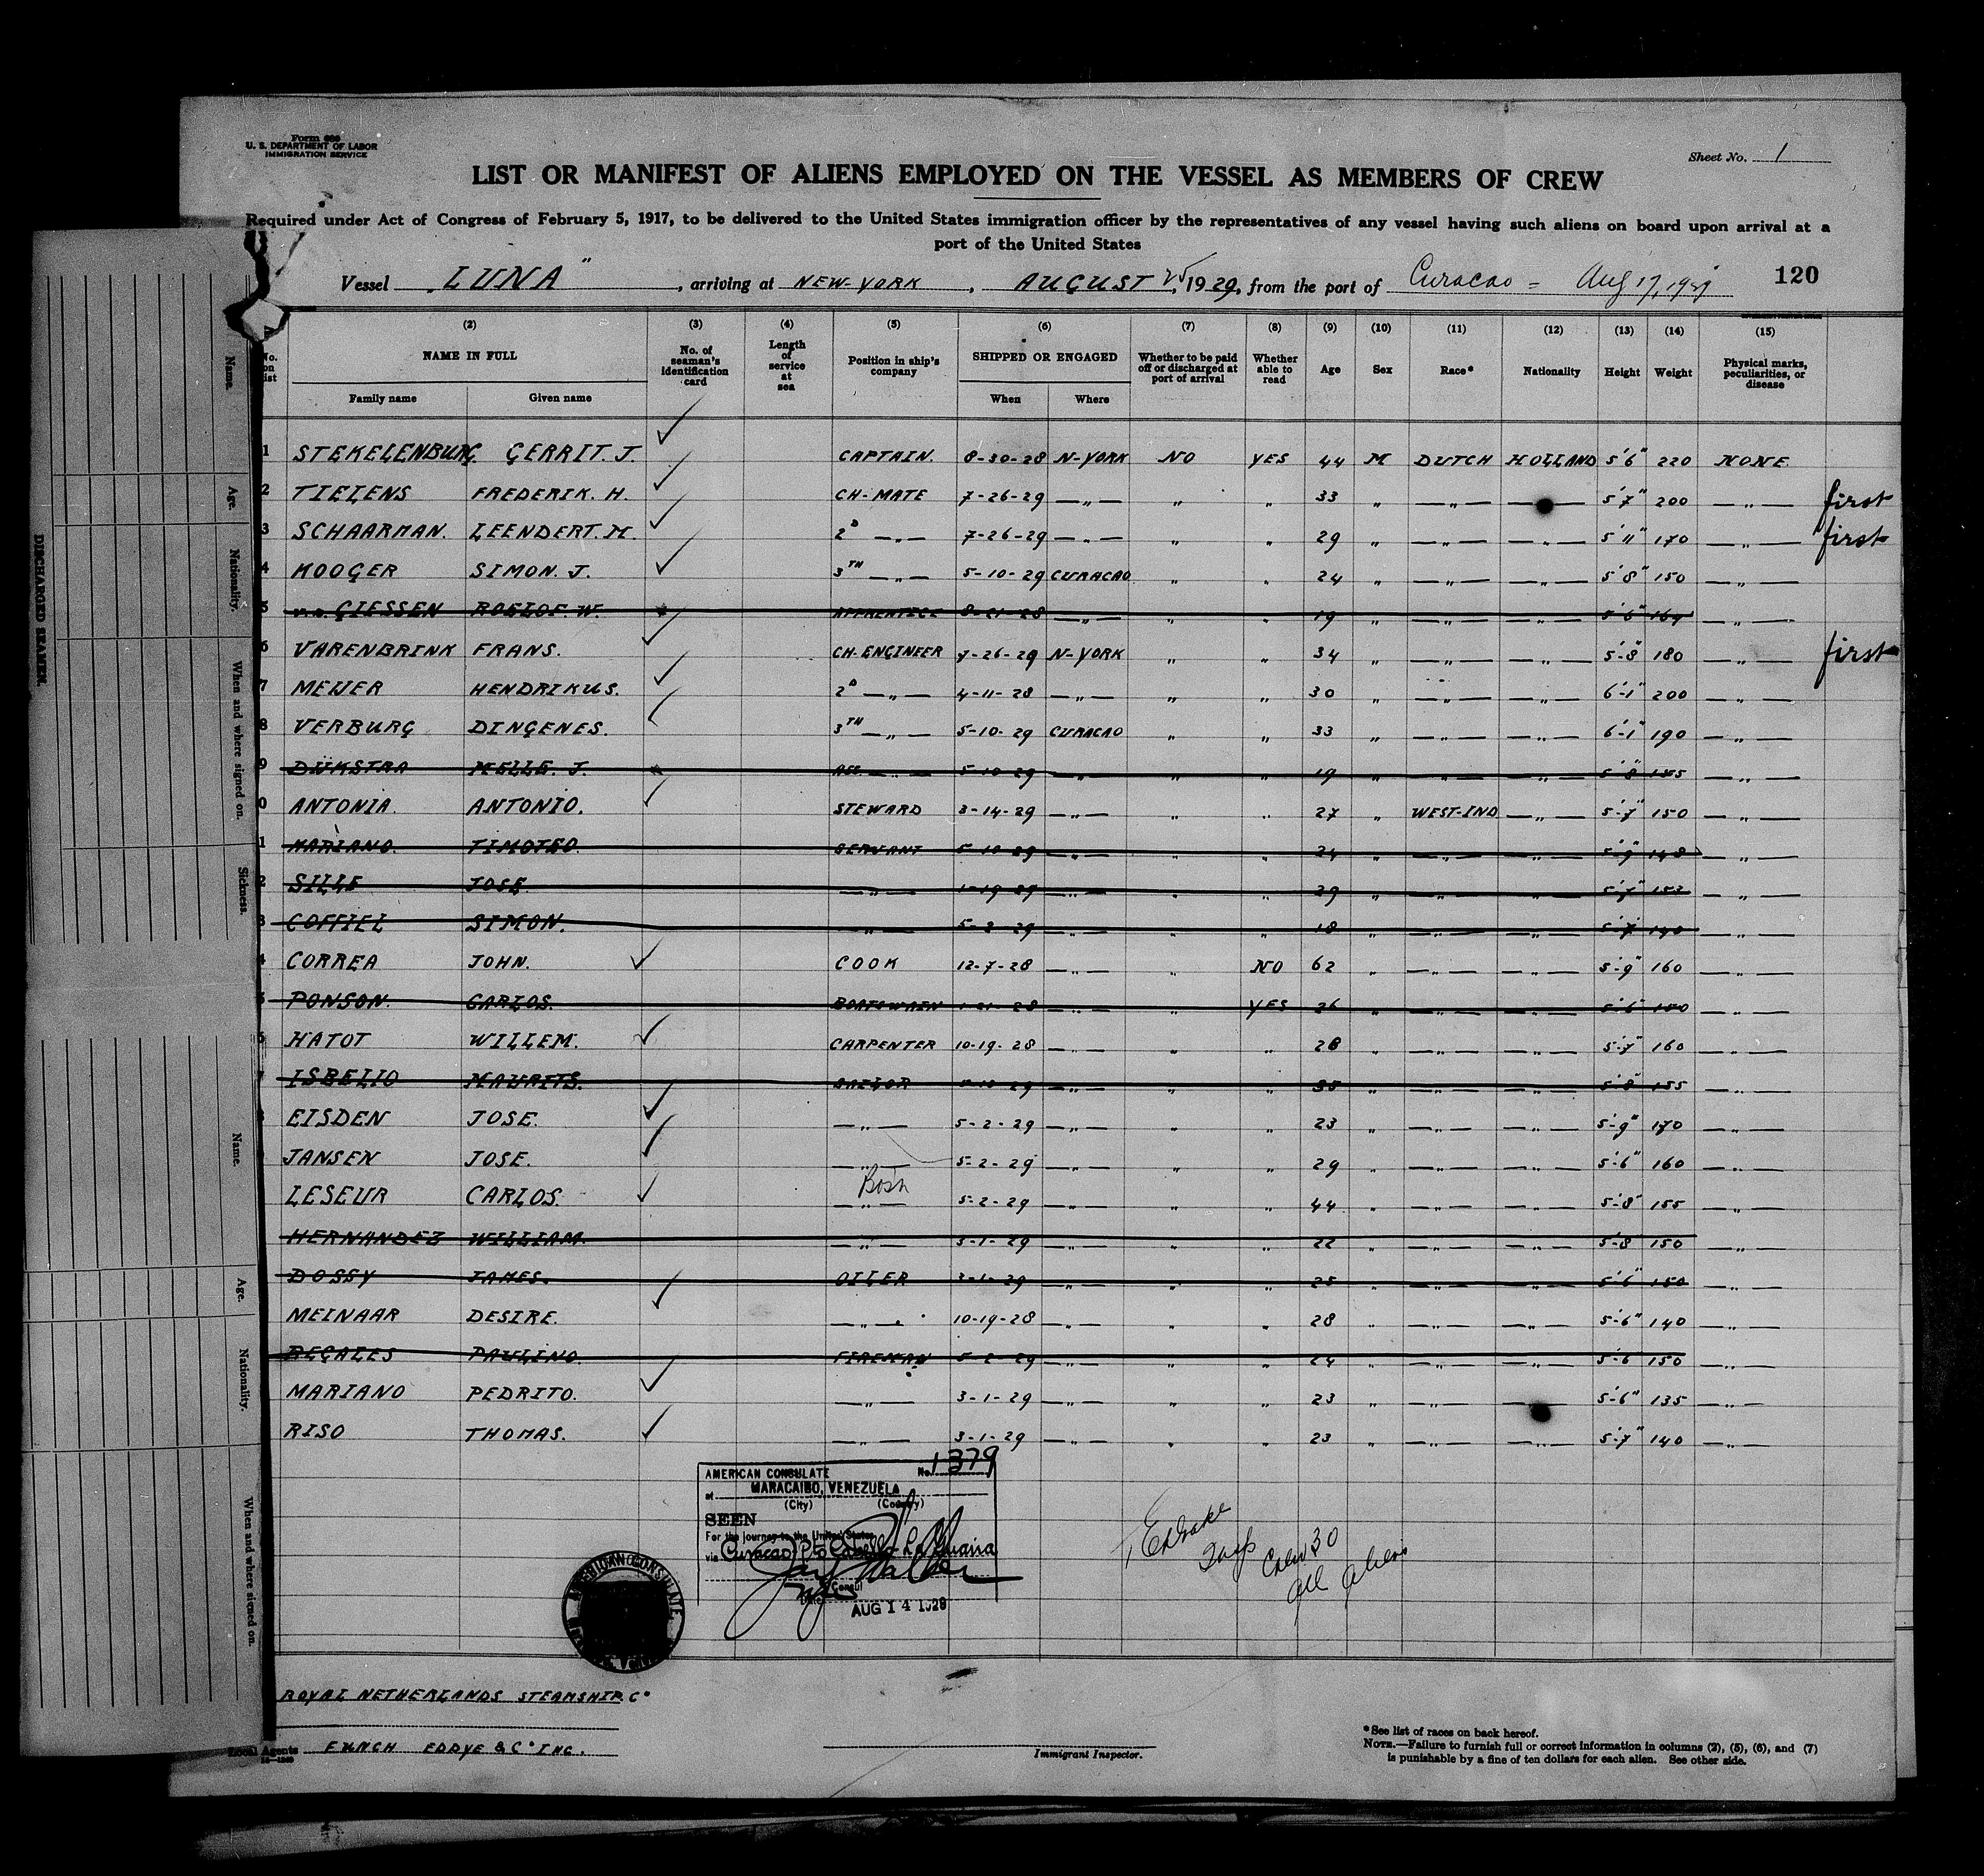 Form 680
U. S. DEPARTMENT OF LABOR
IMMIGRATION SERVICE
Sheet No. 1
LIST OR MANIFEST OF ALIENS EMPLOYED ON THE VESSEL AS MEMBERS OF CREW
Required under Act of Congress of February 5, 1917, to be delivered to the United States immigration officer by the representatives of any vessel having such aliens on board upon arrival at a
port of the United States
Vessel "LUNA", arriving at NEW-YORK, AUGUST 25, 1929, from the port of Curacao = Aug 17, 1929 120
(2) (3) (4) (5) (6) (7) (8) (9) (10) (11) (12) (13) (14) (15)
No. on list NAME IN FULL Family name Given name No. of seaman's identification card Length of service at sea Position in ship's company SHIPPED OR ENGAGED When Where Whether to be paid off or discharged at port of arrival Whether able to read Age Sex Race* Nationality Height Weight Physical marks, peculiarities, or disease
1 STEKELENBURG GERRIT. J. ✓ CAPTAIN. 8-30-28 N-YORK NO YES 44 M DUTCH HOLLAND 5'6" 220 NONE.
2 TIELENS FREDERIK. H. ✓ CH-MATE 7-26-29 —„— „ „ 33 „ —„— —„— 5'7" 200 —„— first
3 SCHAARMAN. LEENDERT. M. ✓ 2D —„— 7-26-29 —„— „ „ 29 „ —„— —„— 5'11" 170 —„— first
4 KOOGER SIMON. J. ✓ 3TH —„— 5-10-29 CURACAO „ „ 24 „ —„— —„— 5'8" 150 —„—
5 v.d. GIESSEN ROELOF. W. APPRENTICE 8-21-28 —„— „ „ 19 „ —„— —„— 5'6" 164 —„—
6 VARENBRINK FRANS. ✓ CH-ENGINEER 7-26-29 N-YORK „ „ 34 „ —„— —„— 5-8" 180 —„— first
7 MEIJER HENDRIKUS. ✓ 2D —„— 4-11-28 —„— „ „ 30 „ —„— —„— 6-1" 200 —„—
8 VERBURG DINGENES. ✓ 3TH —„— 5-10-29 CURACAO „ „ 33 „ —„— —„— 6-1" 190 —„—
9 DIJKSTRA MELLE. J. ASS —„— 5-10-29 —„— „ „ 19 „ —„— —„— 5'8" 155 —„—
0 ANTONIA. ANTONIO. ✓ STEWARD 3-14-29 —„— „ „ 27 „ WEST-IND —„— 5-7" 150 —„—
1 MARIANO. TIMOTEO. SERVANT 5-10-29 —„— „ „ 24 „ —„— —„— 5-9" 148 —„—
2 SILLE JOSE. —„— 1-19-29 —„— „ „ 29 „ —„— —„— 5-7" 152 —„—
3 COFFIEL SIMON. —„— 5-2-29 —„— „ „ 18 „ —„— —„— 5-7 140 —„—
4 CORREA JOHN. ✓ COOK 12-7-28 —„— „ NO 62 „ —„— —„— 5-9" 160 —„—
5 PONSON. CARLOS. BOATSWAIN 1-21-28 —„— „ YES 26 „ —„— —„— 5-6" 150 —„—
6 HATOT WILLEM. ✓ CARPENTER 10-19-28 —„— „ „ 28 „ —„— —„— 5-7" 160 —„—
7 ISBELIO MAURITS. SAILOR 5-10-29 —„— „ „ 35 „ —„— —„— 5-8" 155 —„—
EISDEN JOSE. ✓ —„— 5-2-29 —„— „ „ 23 „ —„— —„— 5-9" 170 —„—
JANSEN JOSE. ✓ —„— 5-2-29 —„— „ „ 29 „ —„— —„— 5-6" 160 —„—
LESEUR CARLOS. ✓ Bosn —„— 5-2-29 —„— „ „ 44 „ —„— —„— 5-8" 155 —„—
HERNANDEZ WILLIAM. —„— 5-1-29 —„— „ „ 22 „ —„— —„— 5-8 150 —„—
DOSSY JAMES. OILER 2-1-29 —„— „ „ 25 „ —„— —„— 5-6" 150 —„—
MEINAAR DESIRE. ✓ —„— 10-19-28 —„— „ „ 28 „ —„— —„— 5-6" 140 —„—
REGALES PAULINO. FIREMAN 5-2-29 —„— „ „ 24 „ —„— —„— 5-6 150 —„—
MARIANO PEDRITO. ✓ —„— 3-1-29 —„— „ „ 23 „ —„— —„— 5-6" 135 —„—
RISO THOMAS. ✓ —„— 3-1-29 —„— „ „ 23 „ —„— —„— 5-7" 140 —„—
AMERICAN CONSULATE No. 1379
at MARACAIBO, VENEZUELA
(City) (Country)
SEEN
For the journey to the United States
via Curacao, Pto Cabello La Guaira
Consul
Date
AUG 14 1929
Crew 30
all aliens
ROYAL NETHERLANDS STEAMSHIP. Co
Local Agents FUNCH EDDYE & Co INC.
Immigrant Inspector.
*See list of races on back hereof.
NOTE.—Failure to furnish full or correct information in columns (2), (5), (6), and (7)
is punishable by a fine of ten dollars for each alien. See other side.
DISCHARGED SEAMEN.
Name.
Age.
Nationality.
When and where signed on.
Sickness.
Name.
Age.
Nationality.
When and where signed on.